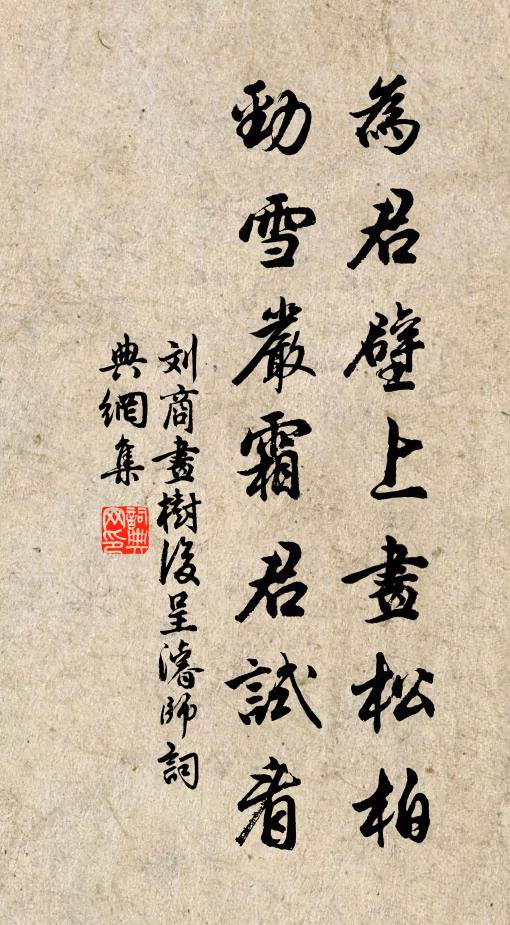 為君壁上畫松柏
勁雪嚴霜君試看
刘商畫樹後呈濬師詞
典網集
詞典網印